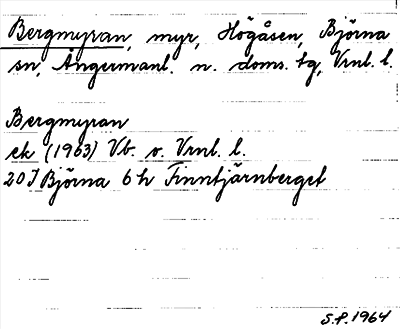 Bergmyran, myr, Högåsen, Björna
sn, Ångermanl. n. doms. tg, Vrnl. l.
Bergmyran
ek (1963) Vb. o. Vrnl. l.
20 I Björna 6 h Finntjärnberget
S.P. 1964